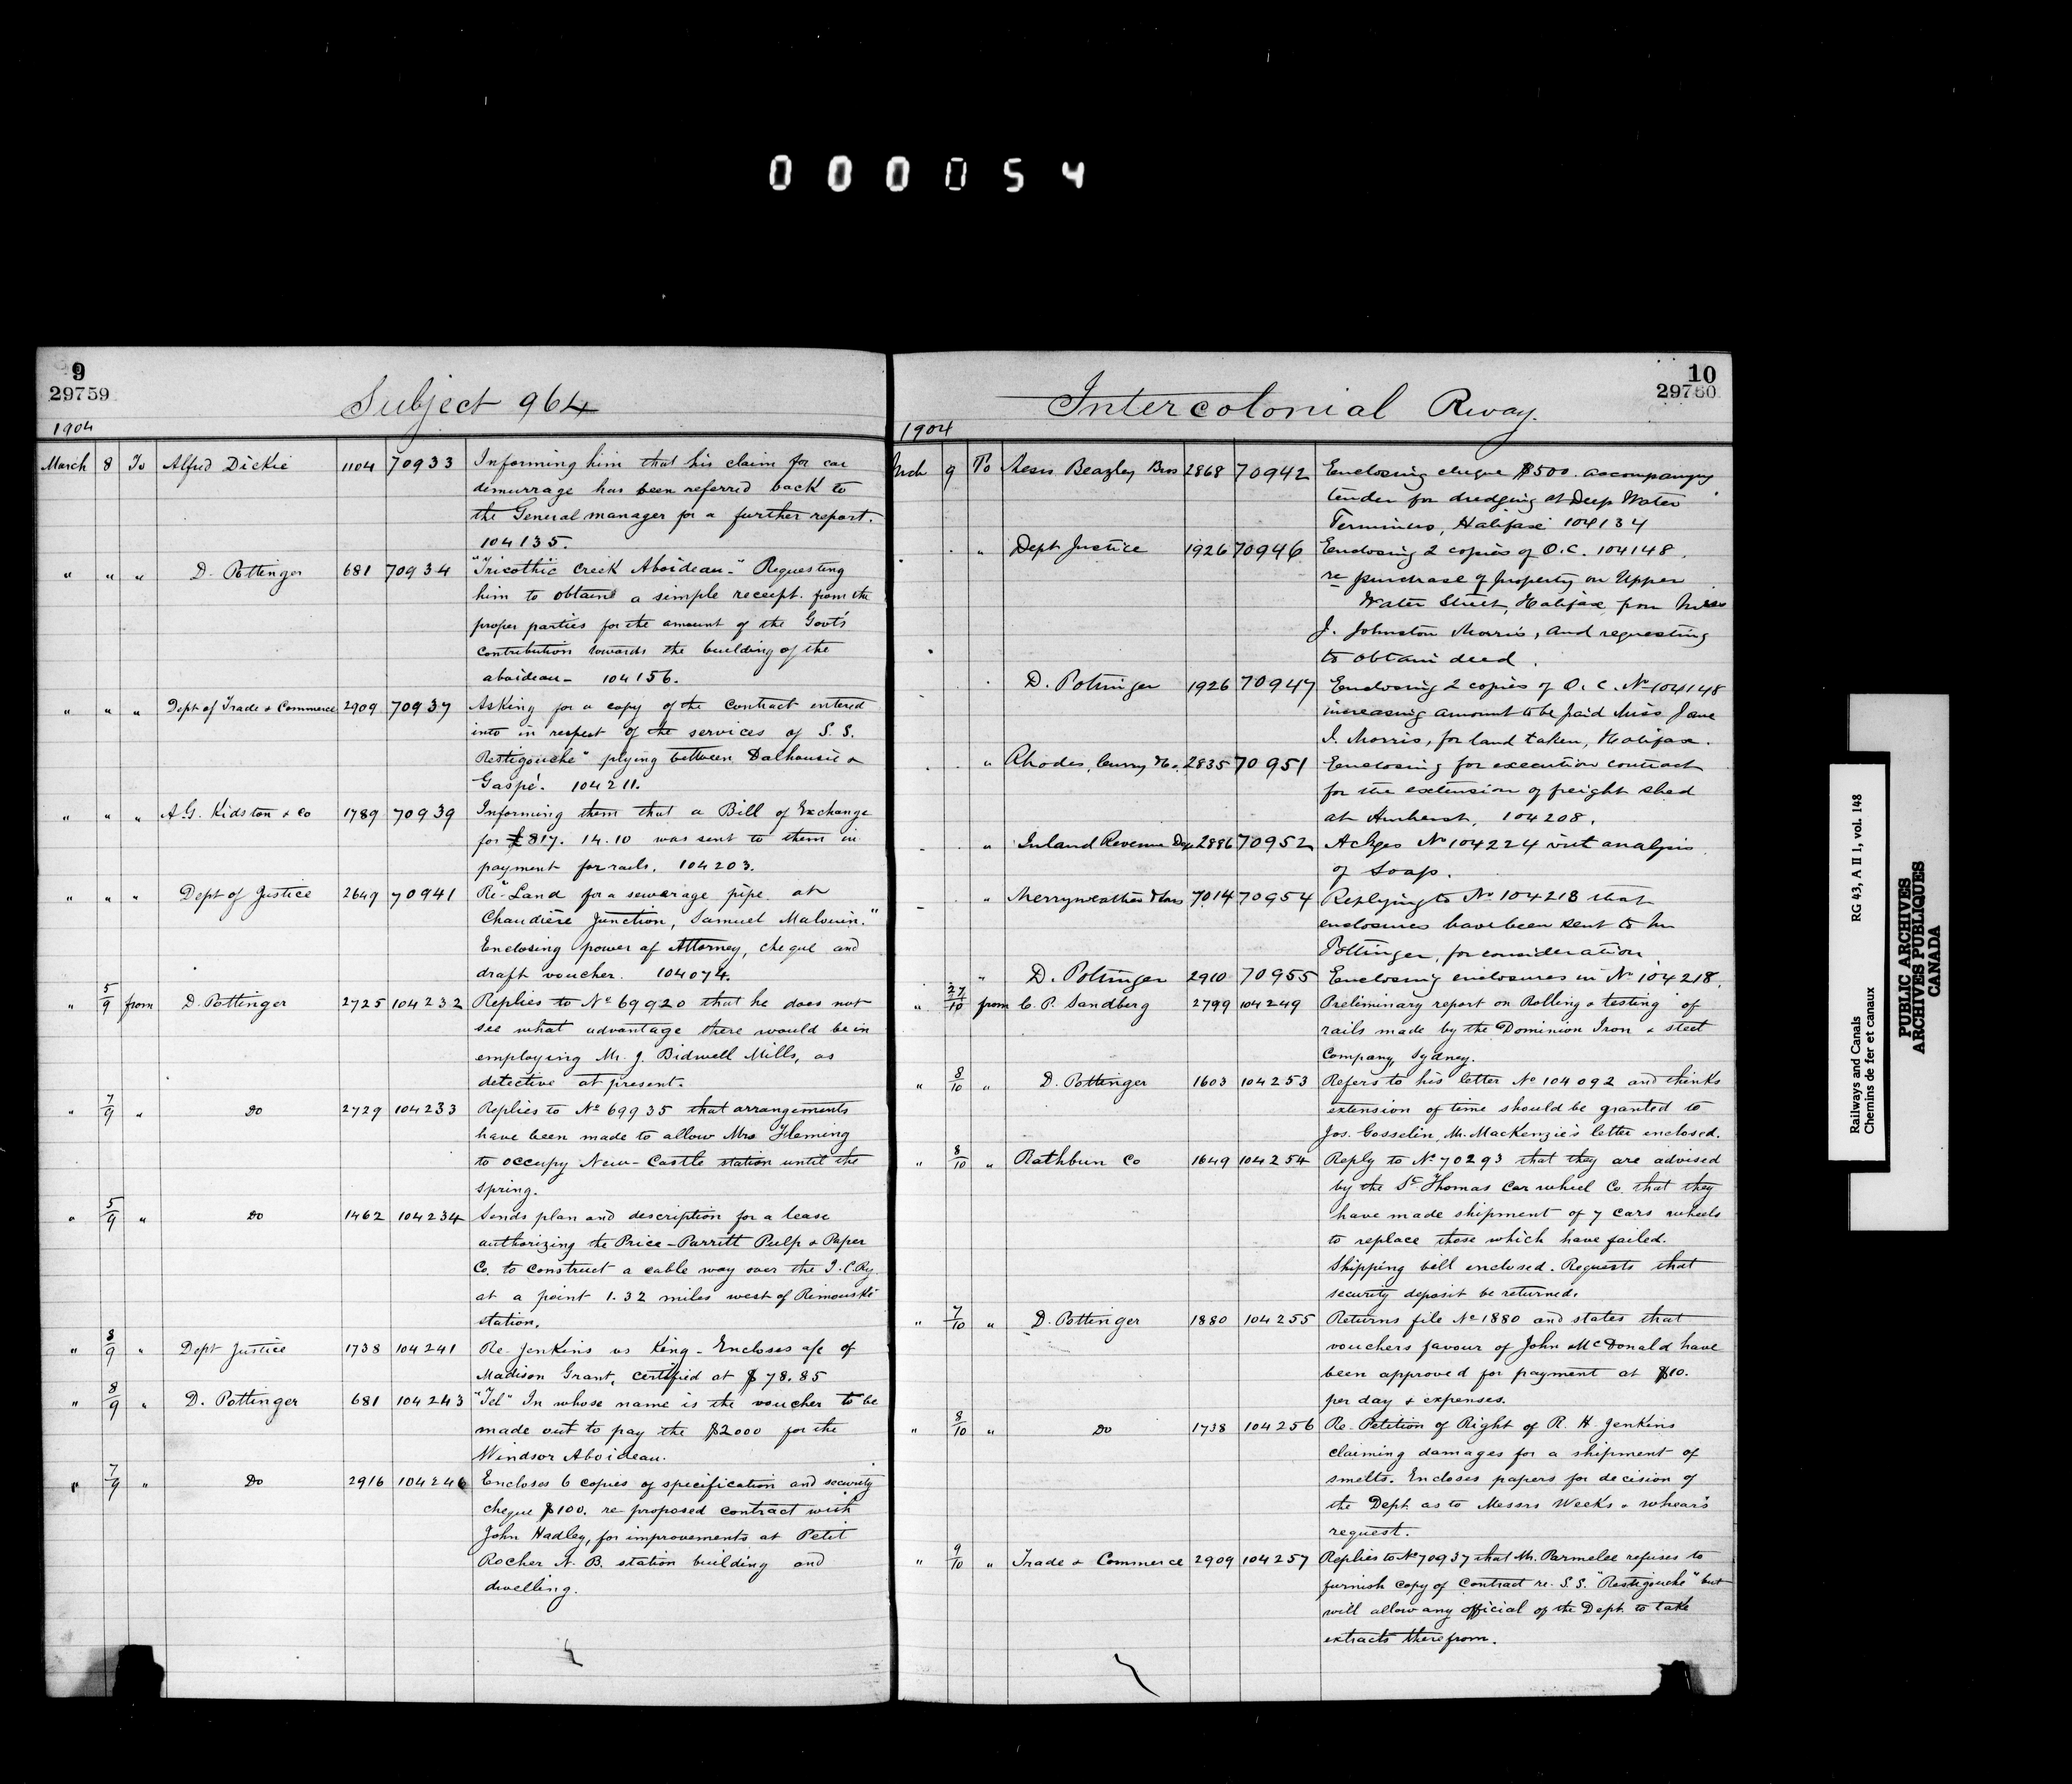 000054
9
29759
Subject 964
1904
March 8 To Alfred Dickie 1104 70933 Informing him that his claim for car
demurrage has been referred back to
the General manager for a further report.
104135.
" " " D. Pottinger 681 70934 "Tricothic Creek Aboideau-" Requesting
him to obtain a simple receipt from the
proper parties for the amount of the Govt's
contribution towards the building of the
aboideau - 104156.
" " " Dept of Trade & Commerce 2909 70937 Asking for a copy of the contract entered
into in respect of the services of S.S.
Restigouche" plying between Dalhousie &
Gaspé. 104211.
" " " A.G. Kidston & Co 1789 70939 Informing them that a Bill of Exchange
for £817. 14. 10 was sent to them in
payment for rails. 104203.
" " " Dept of Justice 2649 70941 Re "Land for a sewerage pipe at
Chaudière Junction, Samuel Malouin."
Enclosing power of Attorney, cheque and
draft voucher. 104074.
" 5/9 from D. Pottinger 2725 104232 Replies to No 69920 that he does not
see what advantage there would be in
employing Mr. J. Bidwell Mills, as
detective at present.
" 7/9 " Do 2729 104233 Replies to No 69935 that arrangements
have been made to allow Mrs Fleming
to occupy New-Castle station until the
spring.
" 5/9 " Do 1462 104234 Sends plan and description for a lease
authorizing the Price-Porritt Pulp & Paper
Co. to construct a cable way over the I.C.Ry
at a point 1.32 miles west of Rimouski
station.
" 8/9 " Dept Justice 1738 104241 Re Jenkins vs King - Encloses a/c of
Madison Grant, certified at $78.85
" 8/9 " D. Pottinger 681 104243 "Tel" In whose name is the voucher to be
made out to pay the $2000 for the
Windsor Aboideau.
" 7/9 " Do 2916 104246 Encloses 6 copies of specification and security
cheque $100. re proposed contract with
John Hadley, for improvements at Petit
Rocher N. B. station building and
dwelling.
10
29760
Intercolonial Rway.
1904
Mch 9 To Messrs Beazley Bros 2868 70942 Enclosing cheque $500. accompanying
tender for dredging at Deep Water
Terminus, Halifax 104134
" Dept Justice 1926 70946 Enclosing 2 copies of O.C. 104148,
re purchase of property on Upper
Water Street, Halifax, from Miss
J. Johnston Morris, and requesting
to obtain deed.
" D. Pottinger 1926 70947 Enclosing 2 copies of O.C. No 104148
increasing amount to be paid Miss Jane
I. Morris, for land taken, Halifax.
" Rhodes, Curry & Co. 2835 70951 Enclosing for execution contract
for the extension of freight shed
at Amherst, 104208.
" Inland Revenue Dep 2886 70952 Ackges No 104224 with analysis
of Soap.
" Merryweather & Sons 7014 70954 Replying to No 104218 that
enclosures have been sent to Mr
Pottinger, for consideration
" D. Pottinger 2910 70955 Enclosing enclosures in No 104218.
" 27/10 from C. P. Sandberg 2799 104249 Preliminary report on Rolling & testing of
rails made by the Dominion Iron & steel
Company, Sydney.
" 8/10 " D. Pottinger 1603 104253 Refers to his letter No 104092 and thinks
extension of time should be granted to
Jos. Gosselin, Mr. MacKenzie's letter enclosed.
" 8/10 " Rathbun Co 1649 104254 Reply to No 70293 that they are advised
by the St Thomas Car wheel Co. that they
have made shipment of 7 cars wheels
to replace those which have failed.
Shipping bill enclosed. Requests that
security deposit be returned.
" 7/10 " D. Pottinger 1880 104255 Returns file No 1880 and states that
vouchers favour of John McDonald have
been approved for payment at $10.
per day & expenses.
" 8/10 " Do 1738 104256 Re Petition of Right of R. H. Jenkins
claiming damages for a shipment of
smelts. Encloses papers for decision of
the Dept. as to Messrs Weeks & Whear's
request.
" 9/10 " Trade & Commerce 2909 104257 Replies to No 70937 that Mr. Parmelee refuses to
furnish copy of contract re. S.S. "Restigouche" but
will allow any official of the Dept. to take
extracts therefrom.
Railways and Canals RG 43, A II 1, vol. 148
Chemins de fer et canaux
PUBLIC ARCHIVES
ARCHIVES PUBLIQUES
CANADA